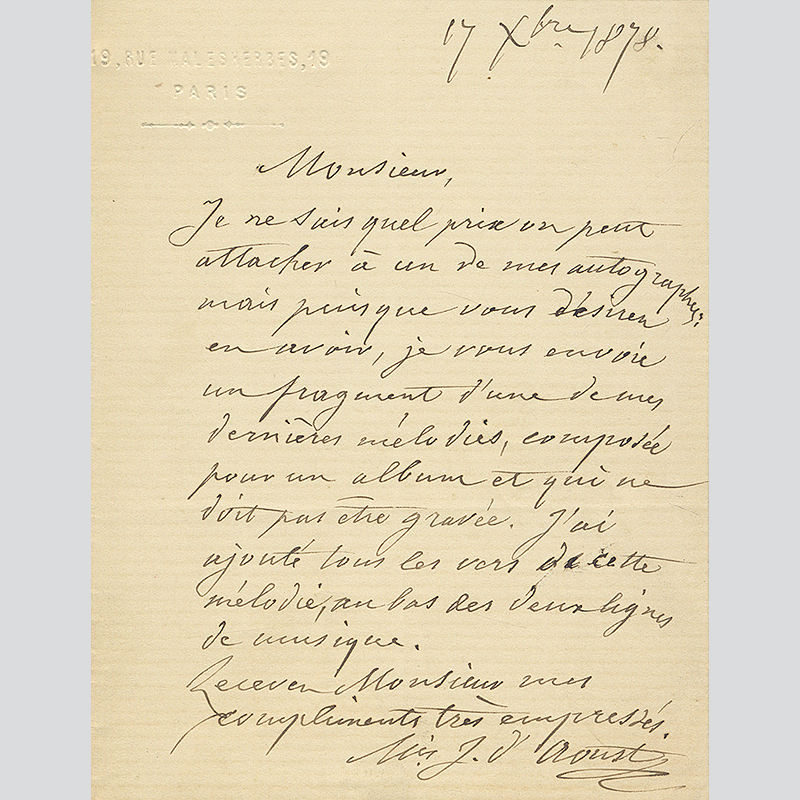 19, RUE MALESHERBES, 19
PARIS
17 Xbre 1878.
Monsieur,
Je ne sais quel prix on peut
attacher à un de mes autographes;
mais puisque vous désirez
en avoir, je vous envoie
un fragment d'une de mes
dernières mélodies, composée
pour un album et qui ne
doit pas être gravée. J'ai
ajouté tous les vers de cette
mélodie, au bas des deux lignes
de musique.
Recevez Monsieur mes
compliments très empressés.
Mis. J. d'Aoust